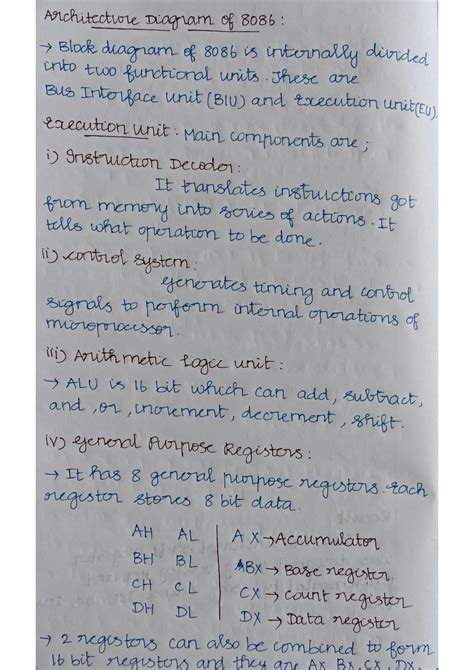 Architecture Diagram of 8086 :
→ Block diagram of 8086 is internally divided
into two functional units. These are
Bus Interface unit (BIU) and Execution unit(EU).
Execution Unit : Main components are ;
i) Instruction Decoder :
It translates instructions got
from memory into series of actions. It
tells what operation to be done.
ii) control system :
Generates timing and control
signals to perform internal operations of
microprocessor.
iii) Arithmetic Logic unit :
→ ALU is 16 bit which can add, subtract,
and, or, increment, decrement, shift.
iv) General Purpose Registers :
→ It has 8 general purpose registers. Each
register stores 8 bit data.
AH AL AX → Accumulator
BH BL BX → Base register
CH CL CX → Count register
DH DL DX → Data register
→ 2 registers can also be combined to form
16 bit registers and they are AX, BX, CX, DX.